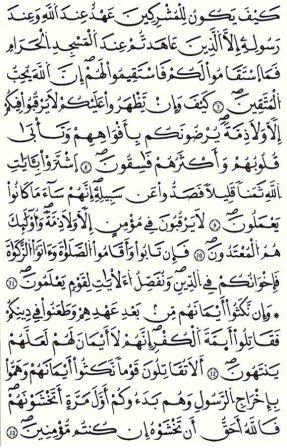 كَيْفَ يَكُونُ لِلْمُشْرِكِينَ عَهْدٌ عِندَ اَللَّهِ وَعِندَ
رَسُولِهِۦٓ إِلَّا اَلذِينَ عَٰهَدتُّمْ عِندَ اَلْمَسْجِدِ اِلْحَرَامِ
فَمَا اَسْتَقَٰمُواْ لَكُمْ فَاسْتَقِيمُواْ لَهُمْۥٓ إِنَّ اَللَّهَ يُحِبُّ
اُلْمُتَّقِينَ كَيْفَ وَإِنْ يَّظْهَرُواْ عَلَيْكُمْ لَا يَرْقُبُواْ فِيكُمْ
إِلّاً وَلَا ذِمَّةً يُرْضُونَكُم بِأَفْوَٰهِهِمْ وَتَأْبَىٰ
قُلُوبُهُمْ وَأَكْثَرُهُمْ فَٰسِقُونَ اَشْتَرَوْاْ بِـَٔايَٰتِ
اِللَّهِ ثَمَناً قَلِيلاً فَصَدُّواْ عَن سَبِيلِهِۦٓ إِنَّهُمْ سَآءَ مَا كَانُواْ
يَعْمَلُونَ لَا يَرْقُبُونَ فِي مُؤْمِنٍ إِلّاً وَلَا ذِمَّةً وَأُوْلَٰٓئِكَ
هُمُ اُلْمُعْتَدُونَ فَإِن تَابُواْ وَأَقَامُواْ اُلصَّلَوٰةَ وَءَاتَوُاْ اُلزَّكَوٰةَ
فَإِخْوَٰنُكُمْ فِي اِلدِّينِ وَنُفَصِّلُ اُلَايَٰتِ لِقَوْمٍ يَعْلَمُونَ
وَإِن نَّكَثُوٓاْ أَيْمَٰنَهُم مِّنۢ بَعْدِ عَهْدِهِمْ وَطَعَنُواْ فِي دِينِكُمْ
فَقَٰتِلُوٓاْ أَئِمَّةَ اَلْكُفْرِ إِنَّهُمْ لَآ أَيْمَٰنَ لَهُمْ لَعَلَّهُمْ
يَنتَهُونَ أَلَا تُقَٰتِلُونَ قَوْماً نَّكَثُوٓاْ أَيْمَٰنَهُمْ وَهَمُّواْ
بِإِخْرَاجِ اِلرَّسُولِ وَهُم بَدَءُوكُمْۥٓ أَوَّلَ مَرَّةٍ اَتَخْشَوْنَهُمْ
فَاللَّهُ أَحَقُّ أَن تَخْشَوْهُ إِن كُنتُم مُّؤْمِنِينَ